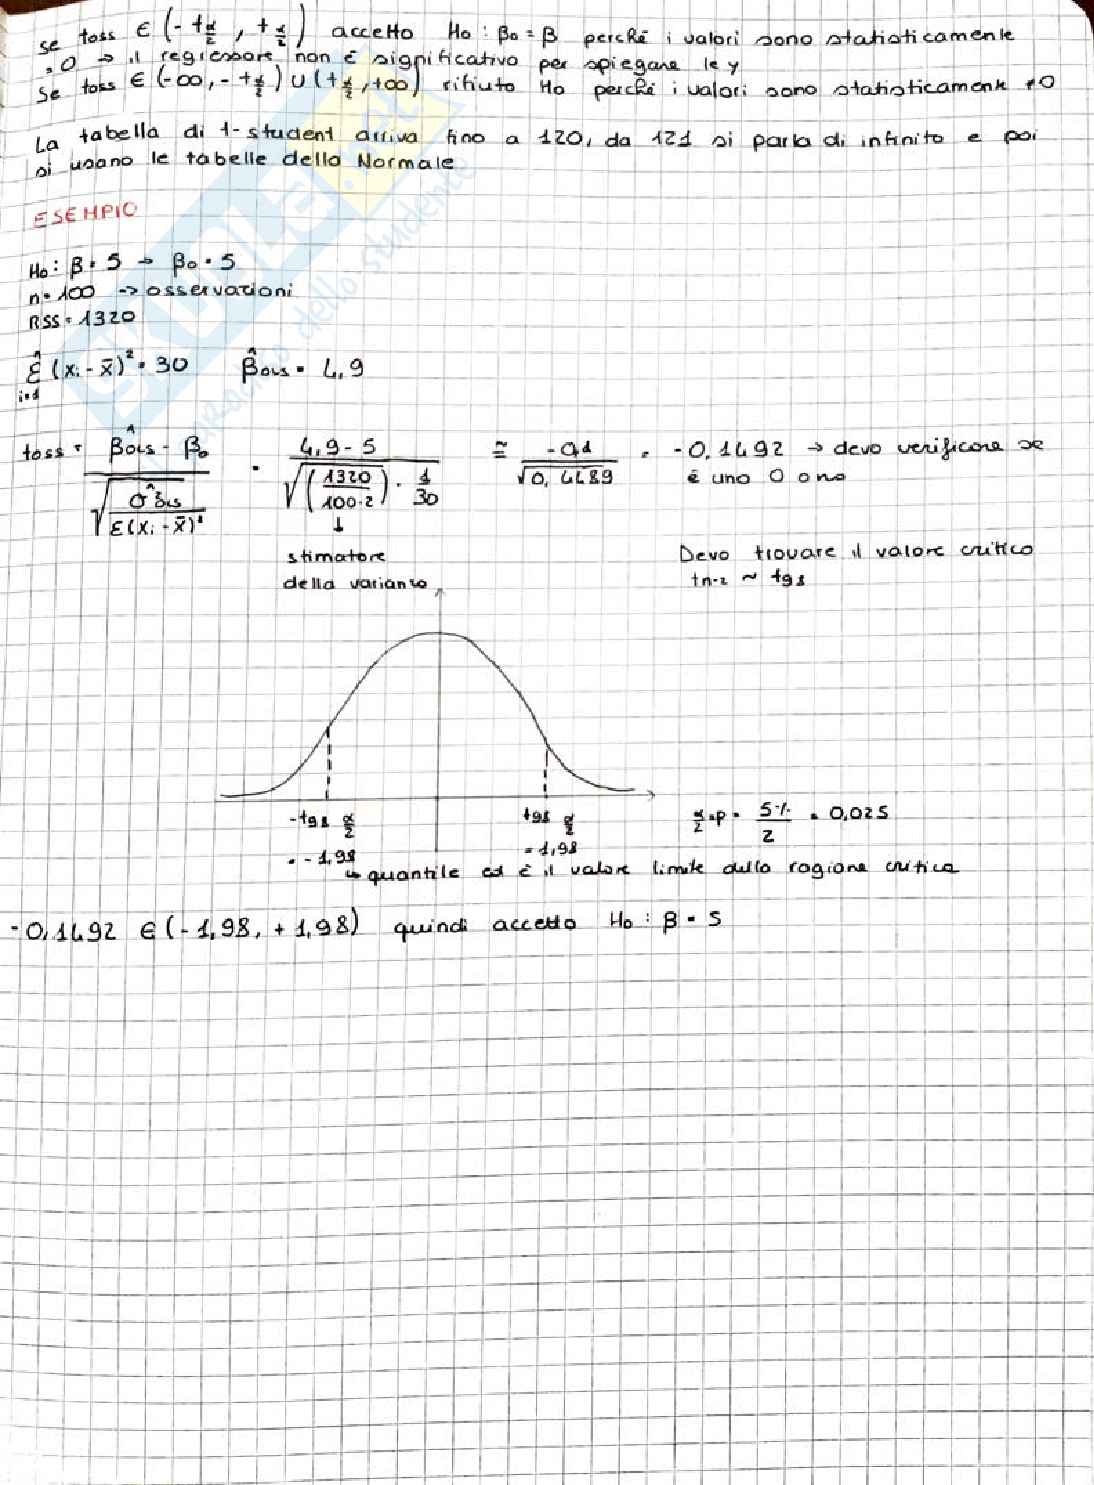 se toss ∈ (-tα/2, +tα/2) accetto Ho: β0 = β perché i valori sono statisticamente
=0 → il regressore non è significativo per spiegare le y
Se toss ∈ (-∞, -tα/2) ∪ (tα/2, +∞) rifiuto Ho perché i valori sono statisticamente ≠0
La tabella di t-student arriva fino a 120, da 121 si parla di infinito e poi
si usano le tabelle della Normale
ESEMPIO
Ho: β = 5 → β0 = 5
n = 100 → osservazioni
RSS = 1320
Σ̂ i=1 (xi - x̄)² = 30 β̂OLS = 4,9
toss = (β̂OLS - β0) / √(σ̂²OLS / Σ(xi - x̄)²) = (4,9 - 5) / √((1320 / 100-2) · 1/30) ≅ -0,1 / √0,4489 = -0,1492 → devo verificare se
è uno 0 o no
↓
stimatore
della varianza
Devo trovare il valore critico
tn-2 ~ t98
-t98 α/2
= -1,98
t98 α/2
= 1,98
α/2 = p = 5% / 2 = 0,025
↳ quantile ed è il valore limite della ragione critica
-0,1492 ∈ (-1,98, +1,98) quindi accetto Ho: β = 5
SKUOLA.net
paradiso dello studente